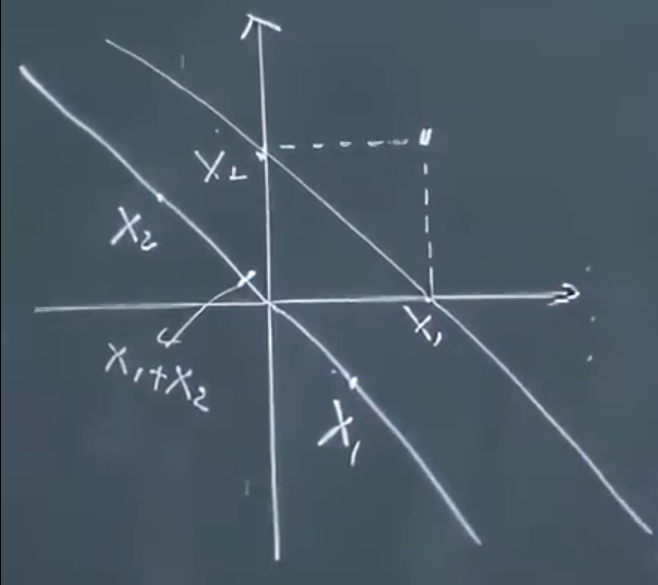 X₂
X₂
X₁
X₁+X₂
X₁